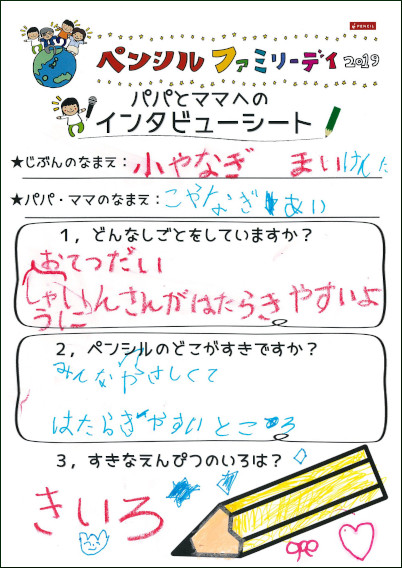 PENCIL
ペンシル ファミリーデイ 2019
パパとママへの
インタビューシート
★じぶんのなまえ：小やなぎ まいけんた
★パパ・ママのなまえ：こやなぎ あい
1，どんなしごとをしていますか？
おてつだい
しゃいんさんがはたらきやすいよ
うに
2，ペンシルのどこがすきですか？
みんなやさしくて
はたらきやすいところ
3，すきなえんぴつのいろは？
きいろ